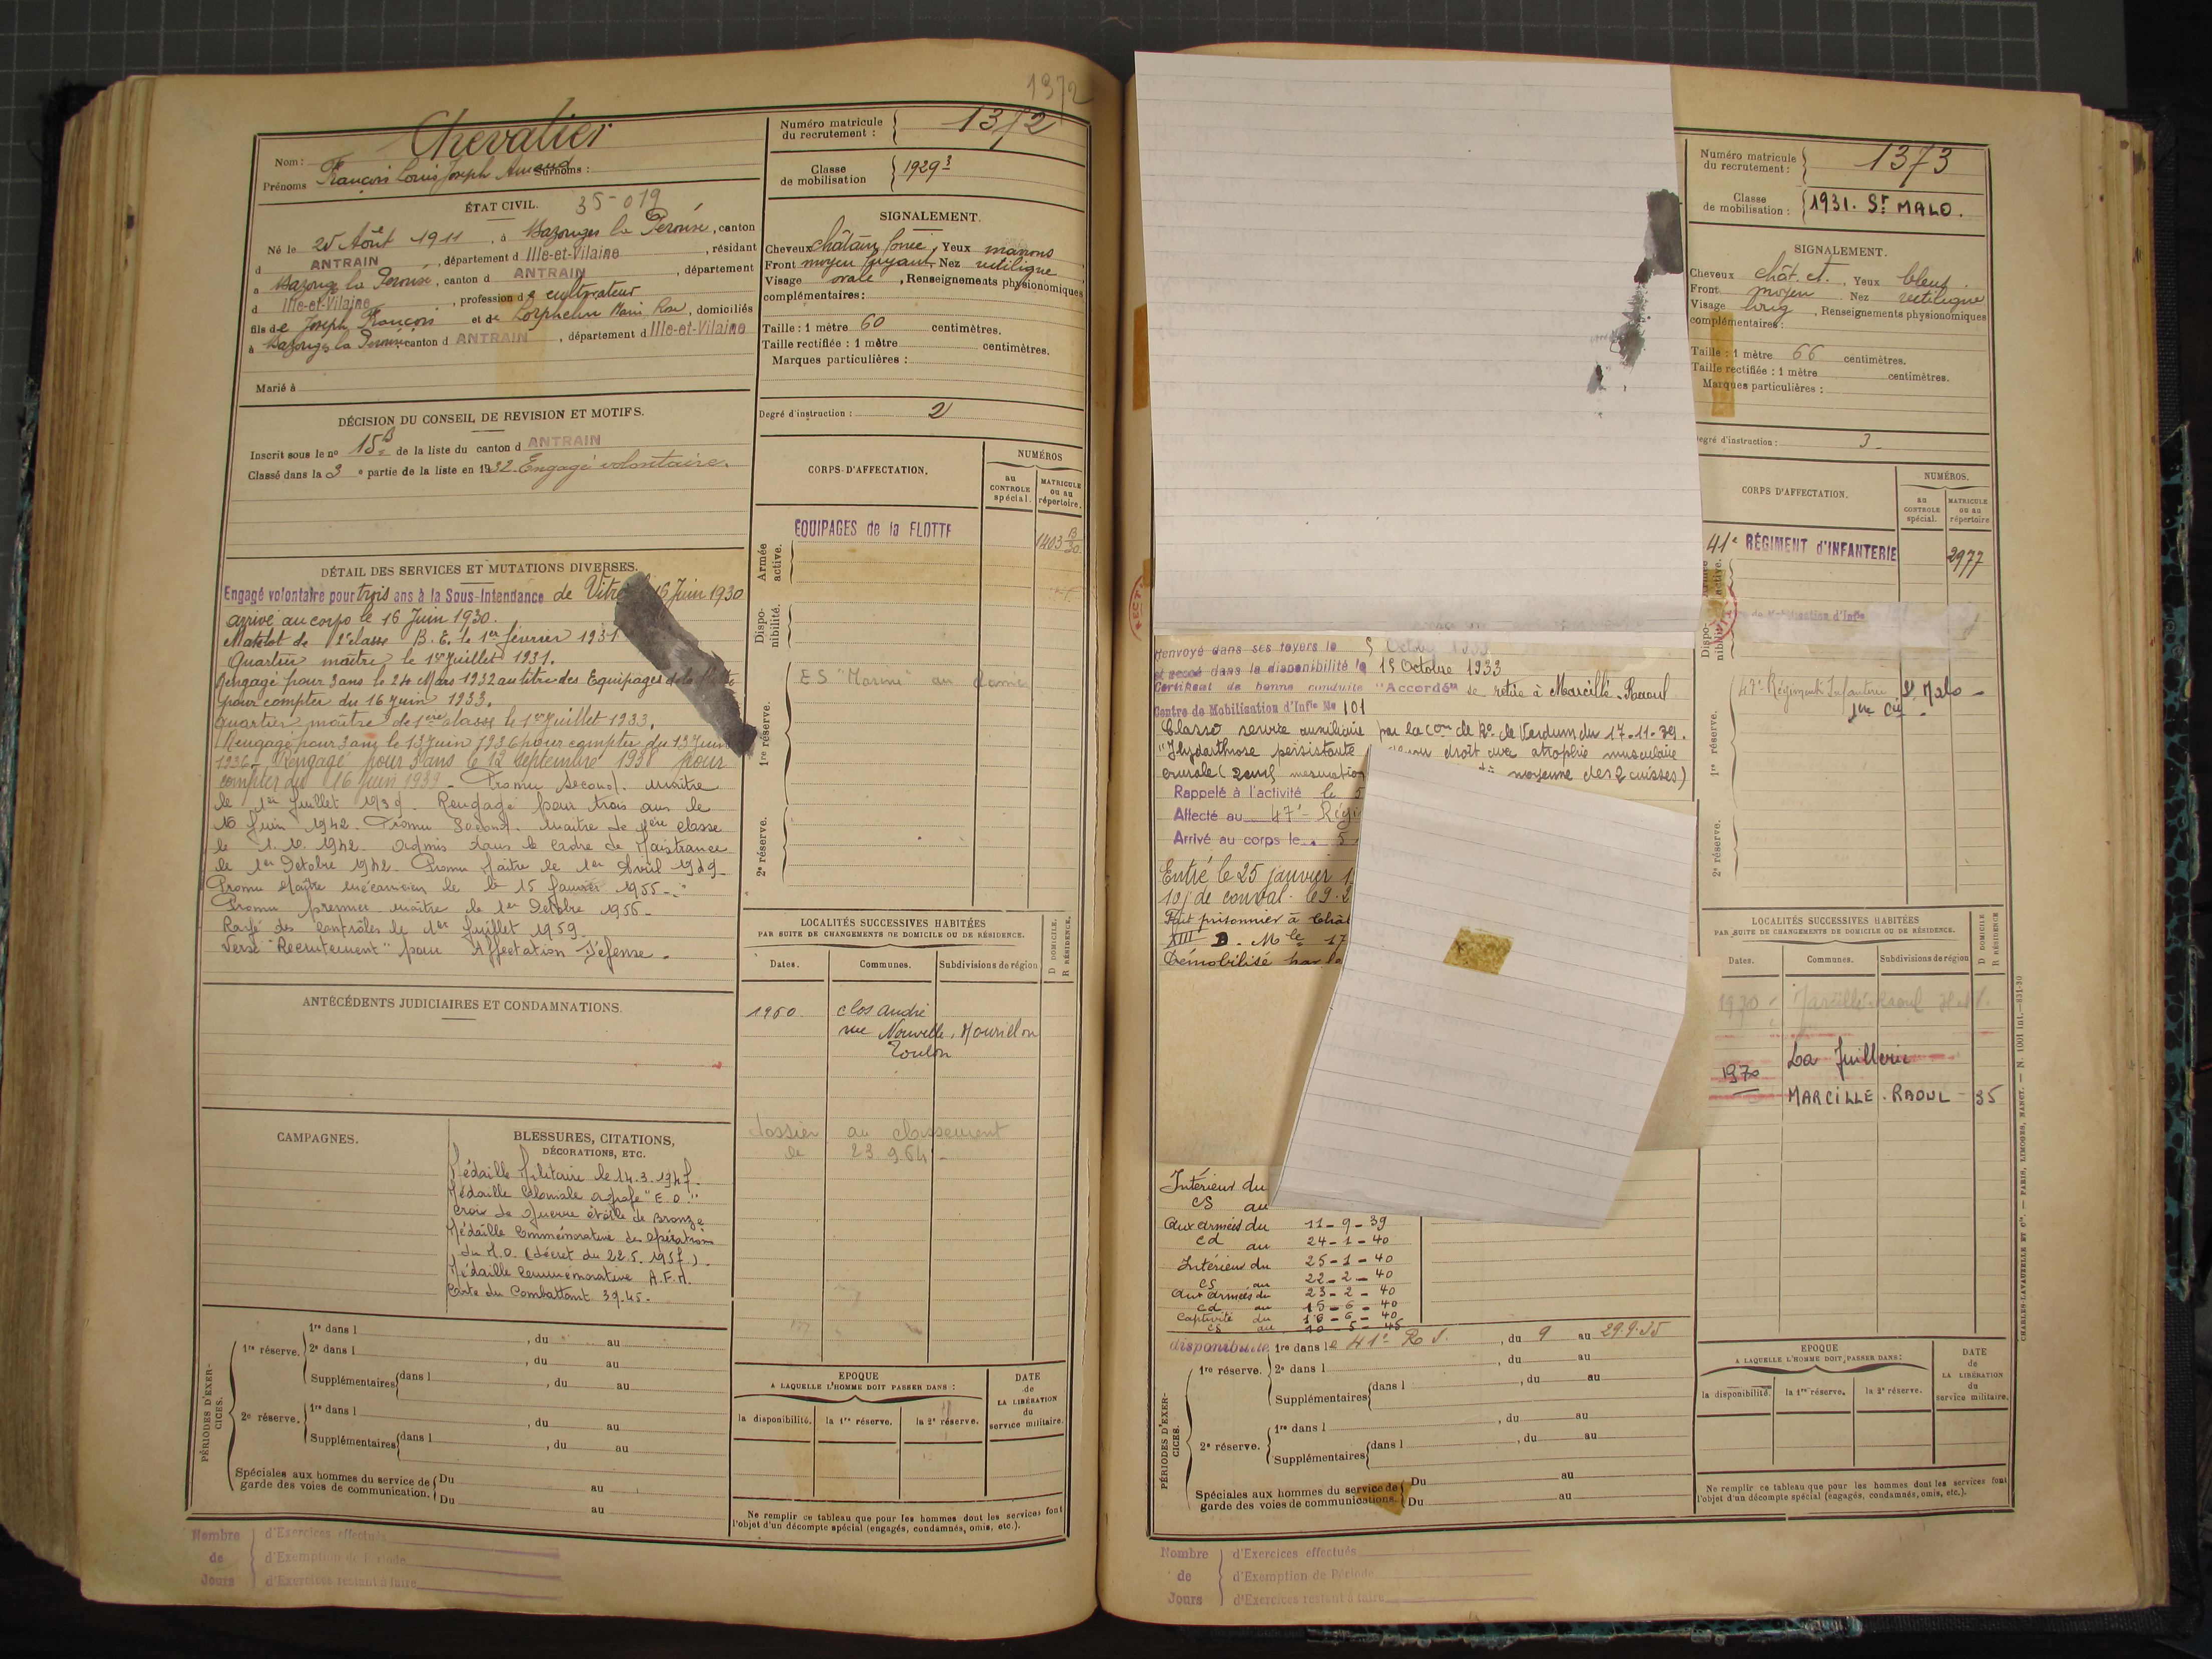 1372
Chevalier
Nom :
Prénoms François Louis Joseph Surnoms :
ÉTAT CIVIL. 35-019
Né le 25 Août 1911, à Bazouges la Pérouse, canton
d ANTRAIN, département d Ille-et-Vilaine, résidant
à Bazouges la Pérouse, canton d ANTRAIN, département
d Ille-et-Vilaine, profession de cultivateur
fils de Joseph François et de Lorphelin Marie, domiciliés
à Bazouges la Pérouse canton d ANTRAIN, département d Ille-et-Vilaine
Marié à
DÉCISION DU CONSEIL DE REVISION ET MOTIFS.
Inscrit sous le no 15B de la liste du canton d ANTRAIN
Classé dans la 3e partie de la liste en 1932. Engagé volontaire.
DÉTAIL DES SERVICES ET MUTATIONS DIVERSES.
Engagé volontaire pour trois ans à la Sous-Intendance de 16 Juin 1930
arrivé au corps le 16 Juin 1930.
Matelot de 2e classe B.E. le 1er février 1931
Quartier maître le 1er Juillet 1931.
Rengagé pour 3 ans le 24 Mars 1932 au titre des Equipages de la
pour compter du 16 Juin 1933.
Quartier maître de 1ere classe le 1er Juillet 1933.
Rengagé pour 3 ans le 13 Juin 1936 pour compter du 13 Juin
1936 - Rengagé pour 3 ans le 12 septembre 1938 pour
compter du 16 juin 1939 - Promu second. maître
le 1er Juillet 1939. Rengagé pour trois ans le
16 Juin 1942. Promu Second. Maitre de 1ère classe
le 1.10.1942. Admis dans le cadre de Maistrance
le 1er Octobre 1942. Promu Maître le 1er Avril 1949-
Promu Maître mécanicien le 15 Janvier 1955 -
Promu premier maître le 1er Octobre 1956 -
Rayé des contrôles le 1er Juillet 1959.
Versé "Recrutement" pour Affectation Défense.
ANTÉCÉDENTS JUDICIAIRES ET CONDAMNATIONS.
CAMPAGNES.
BLESSURES, CITATIONS,
DÉCORATIONS, ETC.
Médaille Militaire le 14.3.1947.
Médaille Coloniale agrafe "E.O."
Croix de Guerre étoile de Bronze
Médaille Commémorative des Opérations
du M.O. (décret du 22.5.1957).
Médaille Commémorative A.F.N.
Carte du Combattant 39-45.
PÉRIODES D'EXERCICES.
1re réserve. 1re dans l , du au
2e dans l , du au
Supplémentaires dans l , du au
2e réserve. 1re dans l , du au
Supplémentaires dans l , du au
Spéciales aux hommes du service de garde des voies de communication. Du au
Du au
Nombre de Jours
d'Exercices effectués
d'Exemption de Période
d'Exercices restant à faire
Numéro matricule du recrutement : 1372
Classe de mobilisation 1929 3
SIGNALEMENT.
Cheveux châtain foncé, Yeux marrons
Front moyen fuyant, Nez rectiligne
Visage ovale, Renseignements physionomiques
complémentaires :
Taille : 1 mètre 60 centimètres.
Taille rectifiée : 1 mètre centimètres.
Marques particulières :
Degré d'instruction : 2
CORPS D'AFFECTATION.
NUMÉROS
au CONTROLE spécial.
MATRICULE ou au répertoire.
Armée active.
EQUIPAGES de la FLOTTE
1403 B 30
Disponibilité.
1re réserve.
E S "Marine"
2e réserve.
LOCALITÉS SUCCESSIVES HABITÉES
PAR SUITE DE CHANGEMENTS DE DOMICILE OU DE RÉSIDENCE.
Dates. Communes. Subdivisions de région
D DOMICILE.
R RÉSIDENCE.
1960 Clos André
rue Nouvelle. Mourillon
Toulon
dossier au classement
le 23 9 64 -
EPOQUE
A LAQUELLE L'HOMME DOIT PASSER DANS :
la disponibilité. la 1re réserve. la 2e réserve.
DATE de LA LIBÉRATION du service militaire.
Ne remplir ce tableau que pour les hommes dont les services font
l'objet d'un décompte spécial (engagés, condamnés, omis, etc.).
Renvoyé dans ses foyers le
et passé dans la disponibilité le 15 Octobre 1933
Certificat de bonne conduite "Accordé" se retire à Marcillé-Raoul
Centre de Mobilisation d'Infie No 101
Classé service auxiliaire par la con de Re de Verdun du 17-11-39.
"Hydarthrose persistante droit avec atrophie musculaire
crurale moyenne des 2 cuisses)
Rappelé à l'activité le 5
Affecté au 47e Régi
Arrivé au corps le 5
Entré le 25 janvier 1
10j de conval. le 9.2
Fait prisonnier à
XIII D. Mle 17
Démobilisé par
Intérieur du
CS au
aux armées du 11-9-39
Cd au 24-1-40
Intérieur du 25-1-40
CS au 22-2-40
aux armées du 23-2-40
Cd au 15-6-40
Captivité du 16-6-40
CS au 10-5-45
PÉRIODES D'EXERCICES.
disponibilité 1re dans le 41e R I. , du 9 au 29.9.35
1re réserve. 2e dans l , du au
Supplémentaires dans l , du au
2e réserve. 1re dans l , du au
Supplémentaires dans l , du au
Spéciales aux hommes du service de garde des voies de communications. Du au
Du au
Nombre de Jours
d'Exercices effectués
d'Exemption de Période
d'Exercices restant à faire
Numéro matricule du recrutement : 1373
Classe de mobilisation : 1931. St MALO.
SIGNALEMENT.
Cheveux chât. ct., Yeux bleus.
Front moyen Nez rectiligne
Visage long, Renseignements physionomiques
complémentaires :
Taille : 1 mètre 66 centimètres.
Taille rectifiée : 1 mètre centimètres.
Marques particulières :
Degré d'instruction : 3-
CORPS D'AFFECTATION.
NUMÉROS.
au CONTROLE spécial.
MATRICULE ou au répertoire
41e RÉGIMENT d'INFANTERIE 2977
de Mobilisation d'Infie
1re réserve.
47e Régiment Infanterie St Malo -
1re Cie
2e réserve.
LOCALITÉS SUCCESSIVES HABITÉES
PAR SUITE DE CHANGEMENTS DE DOMICILE OU DE RÉSIDENCE.
Dates. Communes. Subdivisions de région
D DOMICILE
R RÉSIDENCE
Marcillé-Raoul
La Juillerie
1970
MARCILLE-RAOUL - 35
EPOQUE
A LAQUELLE L'HOMME DOIT PASSER DANS :
la disponibilité. la 1re réserve. la 2e réserve.
DATE de LA LIBÉRATION du service militaire.
Ne remplir ce tableau que pour les hommes dont les services font
l'objet d'un décompte spécial (engagés, condamnés, omis, etc.).
CHARLES-LAVAUZELLE ET Cie. — PARIS, LIMOGES, NANCY. — N. 1001 int.—831-30